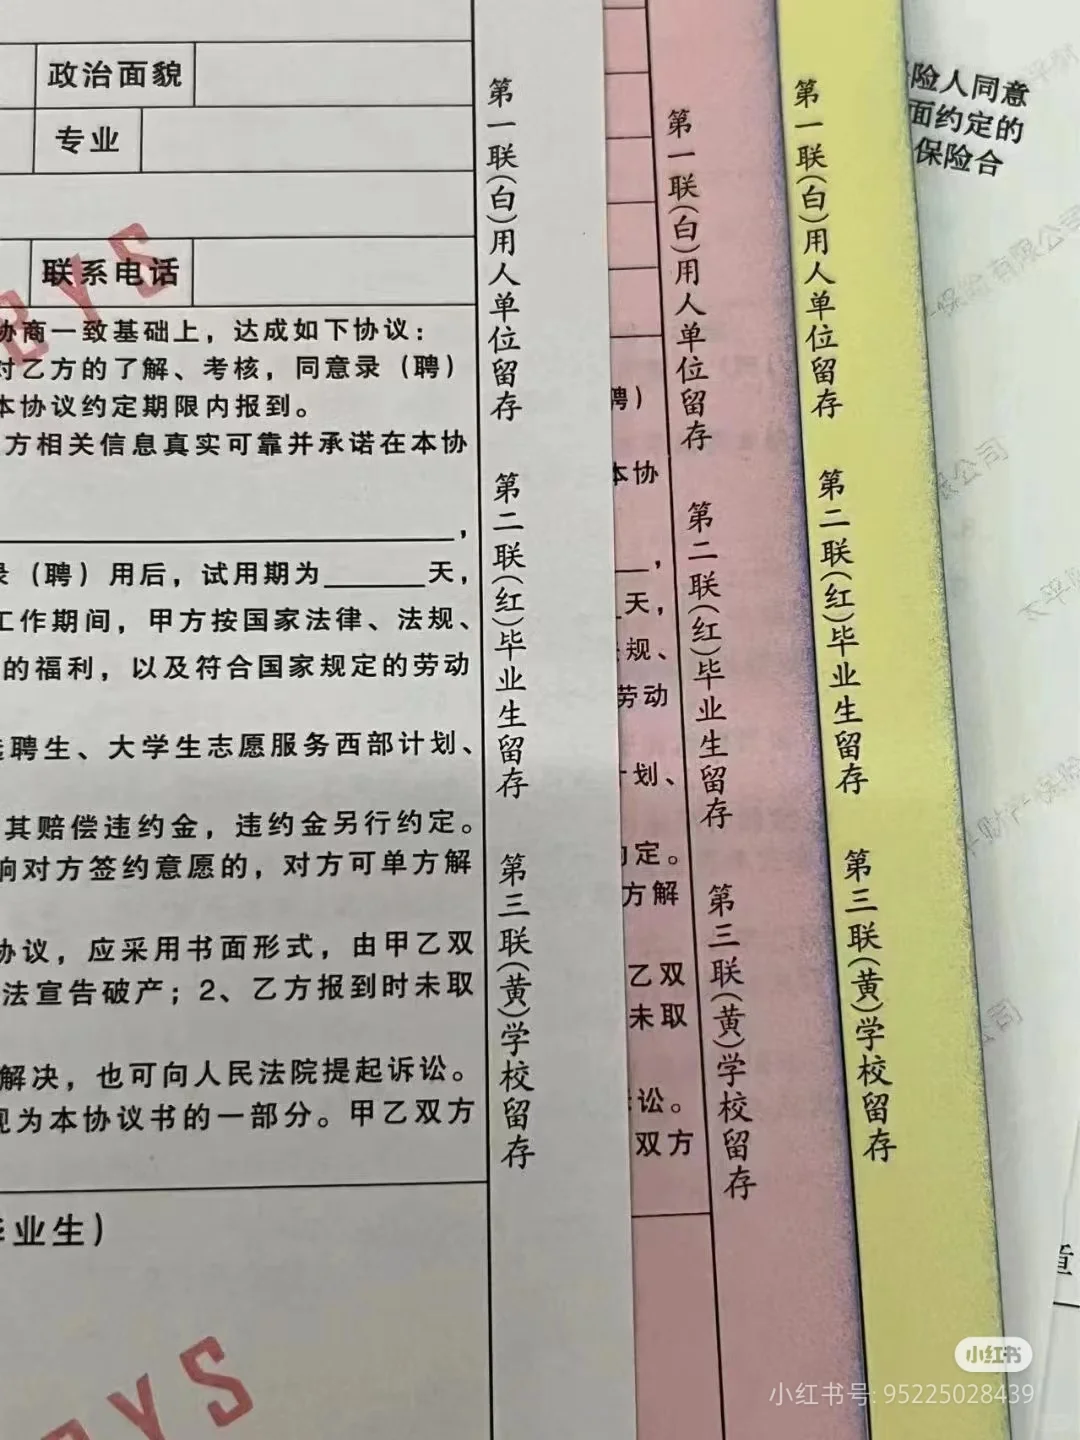 政治面貌
专业
联系电话
BYS
协商一致基础上，达成如下协议：
对乙方的了解、考核，同意录（聘）
本协议约定期限内报到。
方相关信息真实可靠并承诺在本协
，
录（聘）用后，试用期为______天，
工作期间，甲方按国家法律、法规、
的福利，以及符合国家规定的劳动
选聘生、大学生志愿服务西部计划、
其赔偿违约金，违约金另行约定。
响对方签约意愿的，对方可单方解
协议，应采用书面形式，由甲乙双
法宣告破产；2、乙方报到时未取
解决，也可向人民法院提起诉讼。
视为本协议书的一部分。甲乙双方
毕业生）
BYS
第一联(白)用人单位留存
第二联(红)毕业生留存
第三联(黄)学校留存
聘）
本协
，
天，
规、
劳动
计划、
约定。
方解
乙双
未取
讼。
双方
第一联(白)用人单位留存
第二联(红)毕业生留存
第三联(黄)学校留存
第一联(白)用人单位留存
第二联(红)毕业生留存
第三联(黄)学校留存
险人同意
面约定的
保险合
保险有限公司
限公司
太平
平财产保险
公司
小红书
小红书号: 95225028439